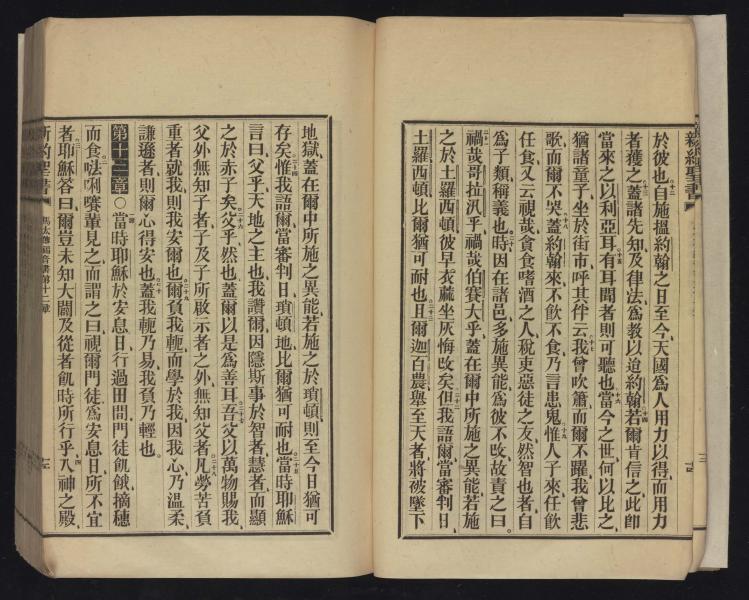 新約聖書
於彼也自施搵約翰之日至今天國爲人用力以得而用力
者獲之蓋諸先知及律法爲敎以迨約翰若爾肯信之此卽
當來之以利亞耳有耳聞者則可聽也當今之世何以比之
猶諸童子坐於街市呼其伴云我曾吹簫而爾不躍我曾悲
歌而爾不哭蓋約翰來不飮不食乃言患鬼惟人子來任飮
任食又云視哉貪食嗜酒之人稅吏惡徒之友然智也者自
爲子類稱義也時因在諸邑多施異能爲彼不攺故責之曰
禍哉哥拉汛乎禍哉伯賽大乎蓋在爾中所施之異能若施
之於土羅西頓彼早衣蔴坐灰悔攺矣但我語爾當審判日
土羅西頓比爾猶可耐也且爾迦百農舉至天者將被墜下
地獄蓋在爾中所施之異能若施之於瑣頓則至今日猶可
存矣惟我語爾當審判日瑣頓地比爾猶可耐也當時耶穌
言曰父乎天地之主也我讚爾因隱斯事於智者慧者而顯
之於赤子矣父乎然也蓋爾以是爲善耳吾父以萬物賜我
父外無知子者子及子所啟示者之外無知父者凡勞苦負
重者就我則我安爾也爾負我軛而學於我因我心乃温柔
謙遜者則爾心得安也蓋我軛乃易我負乃輕也
第十二章○當時耶穌於安息日行過田間門徒飢餓摘穗
而食㳒唎㘔輩見之而謂之曰視爾門徒爲安息日所不宜
者耶穌答曰爾豈未知大闢及從者飢時所行乎入神之殿
新約聖書 馬太傳福音書第十二章